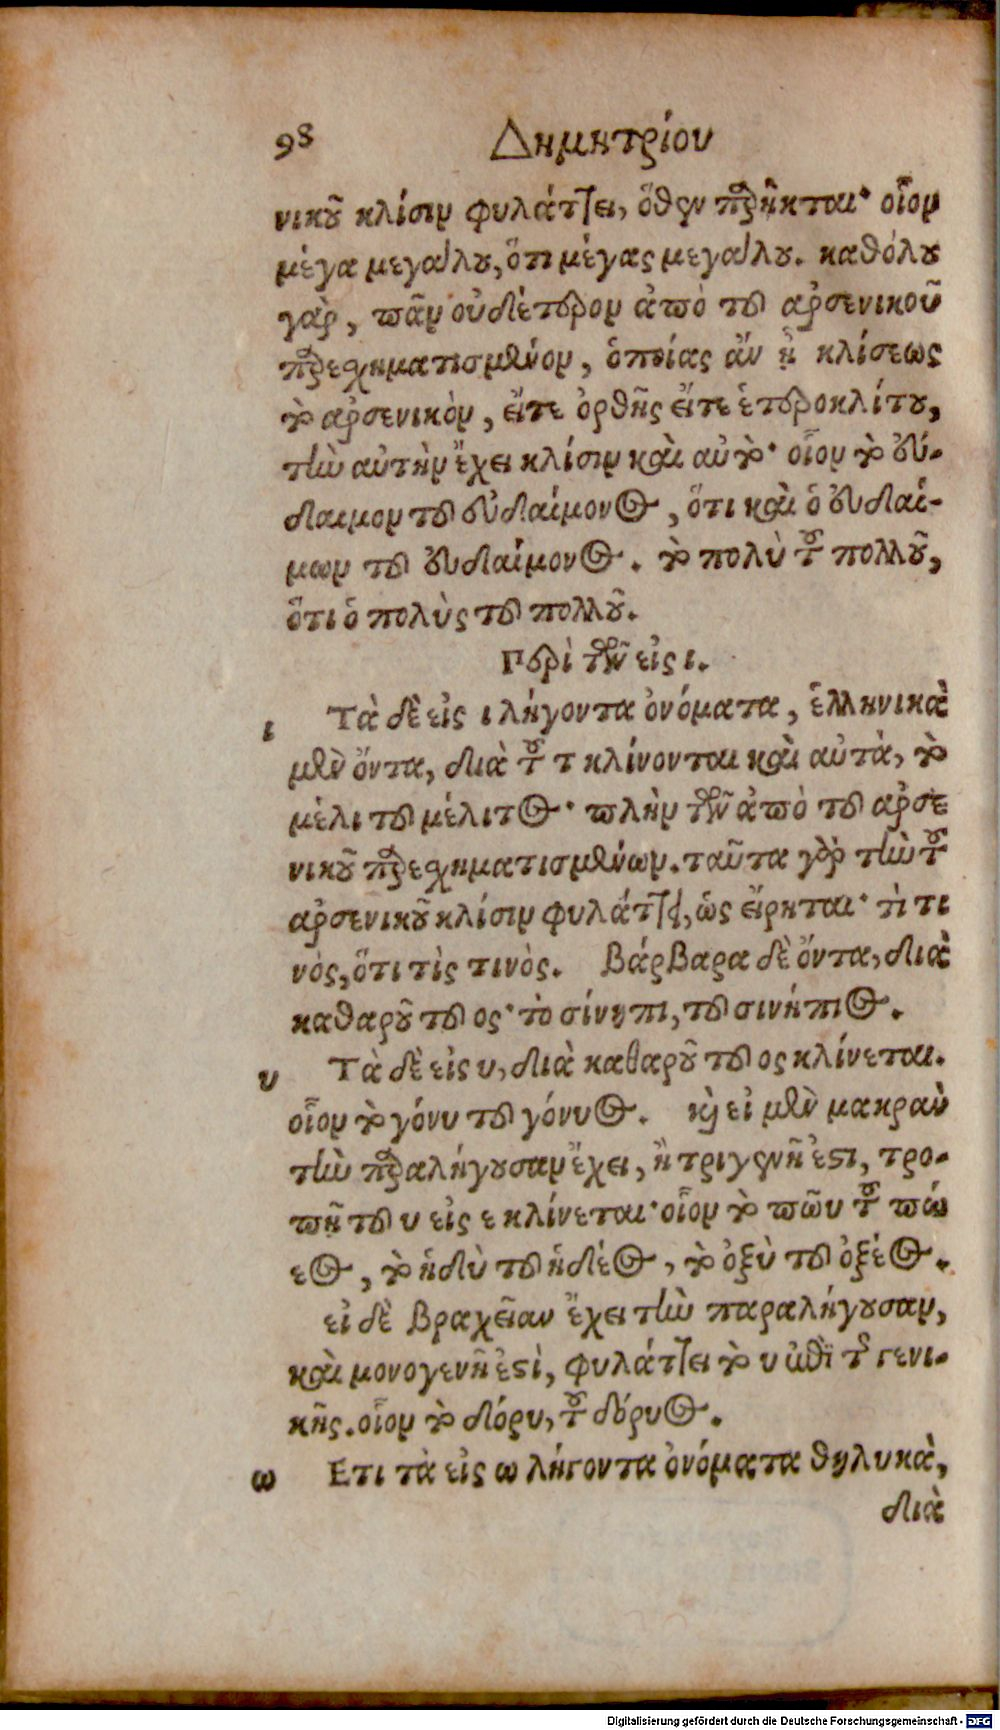 98 Δημητρίου
νικοῦ κλίσιν φυλάττει, ὅθεν παρῆκται· οἷον
μέγα μεγάλου, ὅτι μέγας μεγάλου. καθόλου
γὰρ, πᾶν οὐδέτερον ἀπὸ τοῦ ἀρσενικοῦ
παρεσχηματισμένον, ὁποίας ἄν ᾖ κλίσεως
τὸ ἀρσενικὸν, εἴτε ὀρθῆς εἴτε ἑτεροκλίτου,
τὴν αὐτὴν ἔχει κλίσιν καὶ αὐτό· οἷον τὸ εὔ-
δαιμον τοῦ εὐδαίμονος, ὅτι καὶ ὁ εὐδαί-
μων τοῦ εὐδαίμονος. τὸ πολὺ τοῦ πολλοῦ,
ὅτι ὁ πολὺς τοῦ πολλοῦ.
Περὶ τῶν εἰς ι.
ι Τὰ δὲ εἰς ι λήγοντα ὀνόματα, ἑλληνικὰ
μὲν ὄντα, διὰ τοῦ τ κλίνονται καὶ αὐτὰ, τὸ
μέλι τοῦ μέλιτος· πλὴν τῶν ἀπὸ τοῦ ἀρσε
νικοῦ παρεσχηματισμένων. ταῦτα γὰρ τὴν τοῦ
ἀρσενικοῦ κλίσιν φυλάττει, ὡς εἴρηται· τὶ τι
νὸς, ὅτι τὶς τινὸς. Βάρβαρα δὲ ὄντα, διὰ
καθαροῦ τοῦ ος· τὸ σίνηπι, τοῦ σινήπιος.
υ Τὰ δὲ εἰς υ, διὰ καθαροῦ τοῦ ος κλίνεται.
οἷον τὸ γόνυ τοῦ γόνυος. καὶ εἰ μὲν μακρὰν
τὴν παραλήγουσαν ἔχει, ἢ τριγενῆ ἐστι, τρο-
πῇ τοῦ υ εἰς ε κλίνεται· οἷον τὸ πῶυ τοῦ πώ
εος, τὸ ἡδὺ τοῦ ἡδέος, τὸ ὀξὺ τοῦ ὀξέος.
εἰ δὲ βραχεῖαν ἔχει τὴν παραλήγουσαν,
καὶ μονογενῆ ἐστὶ, φυλάττει τὸ υ ἐπὶ τῆς γενι-
κῆς. οἷον τὸ δόρυ, τοῦ δόρυος.
ω Ετι τὰ εἰς ω λήγοντα ὀνόματα θηλυκὰ,
διὰ
Digitalisierung gefördert durch die Deutsche Forschungsgemeinschaft - DFG